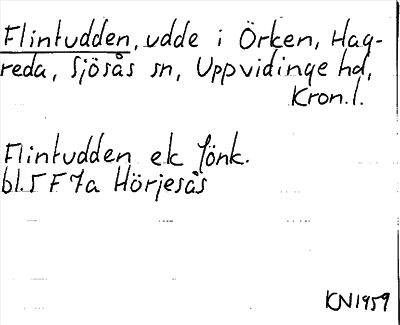 Flintudden, udde i Örken, Hag-
reda, Sjösås sn, Uppvidinge hd,
Kron.l.
Flintudden ek Jönk.
bl.5 F 7a Hörjesås
KN1959